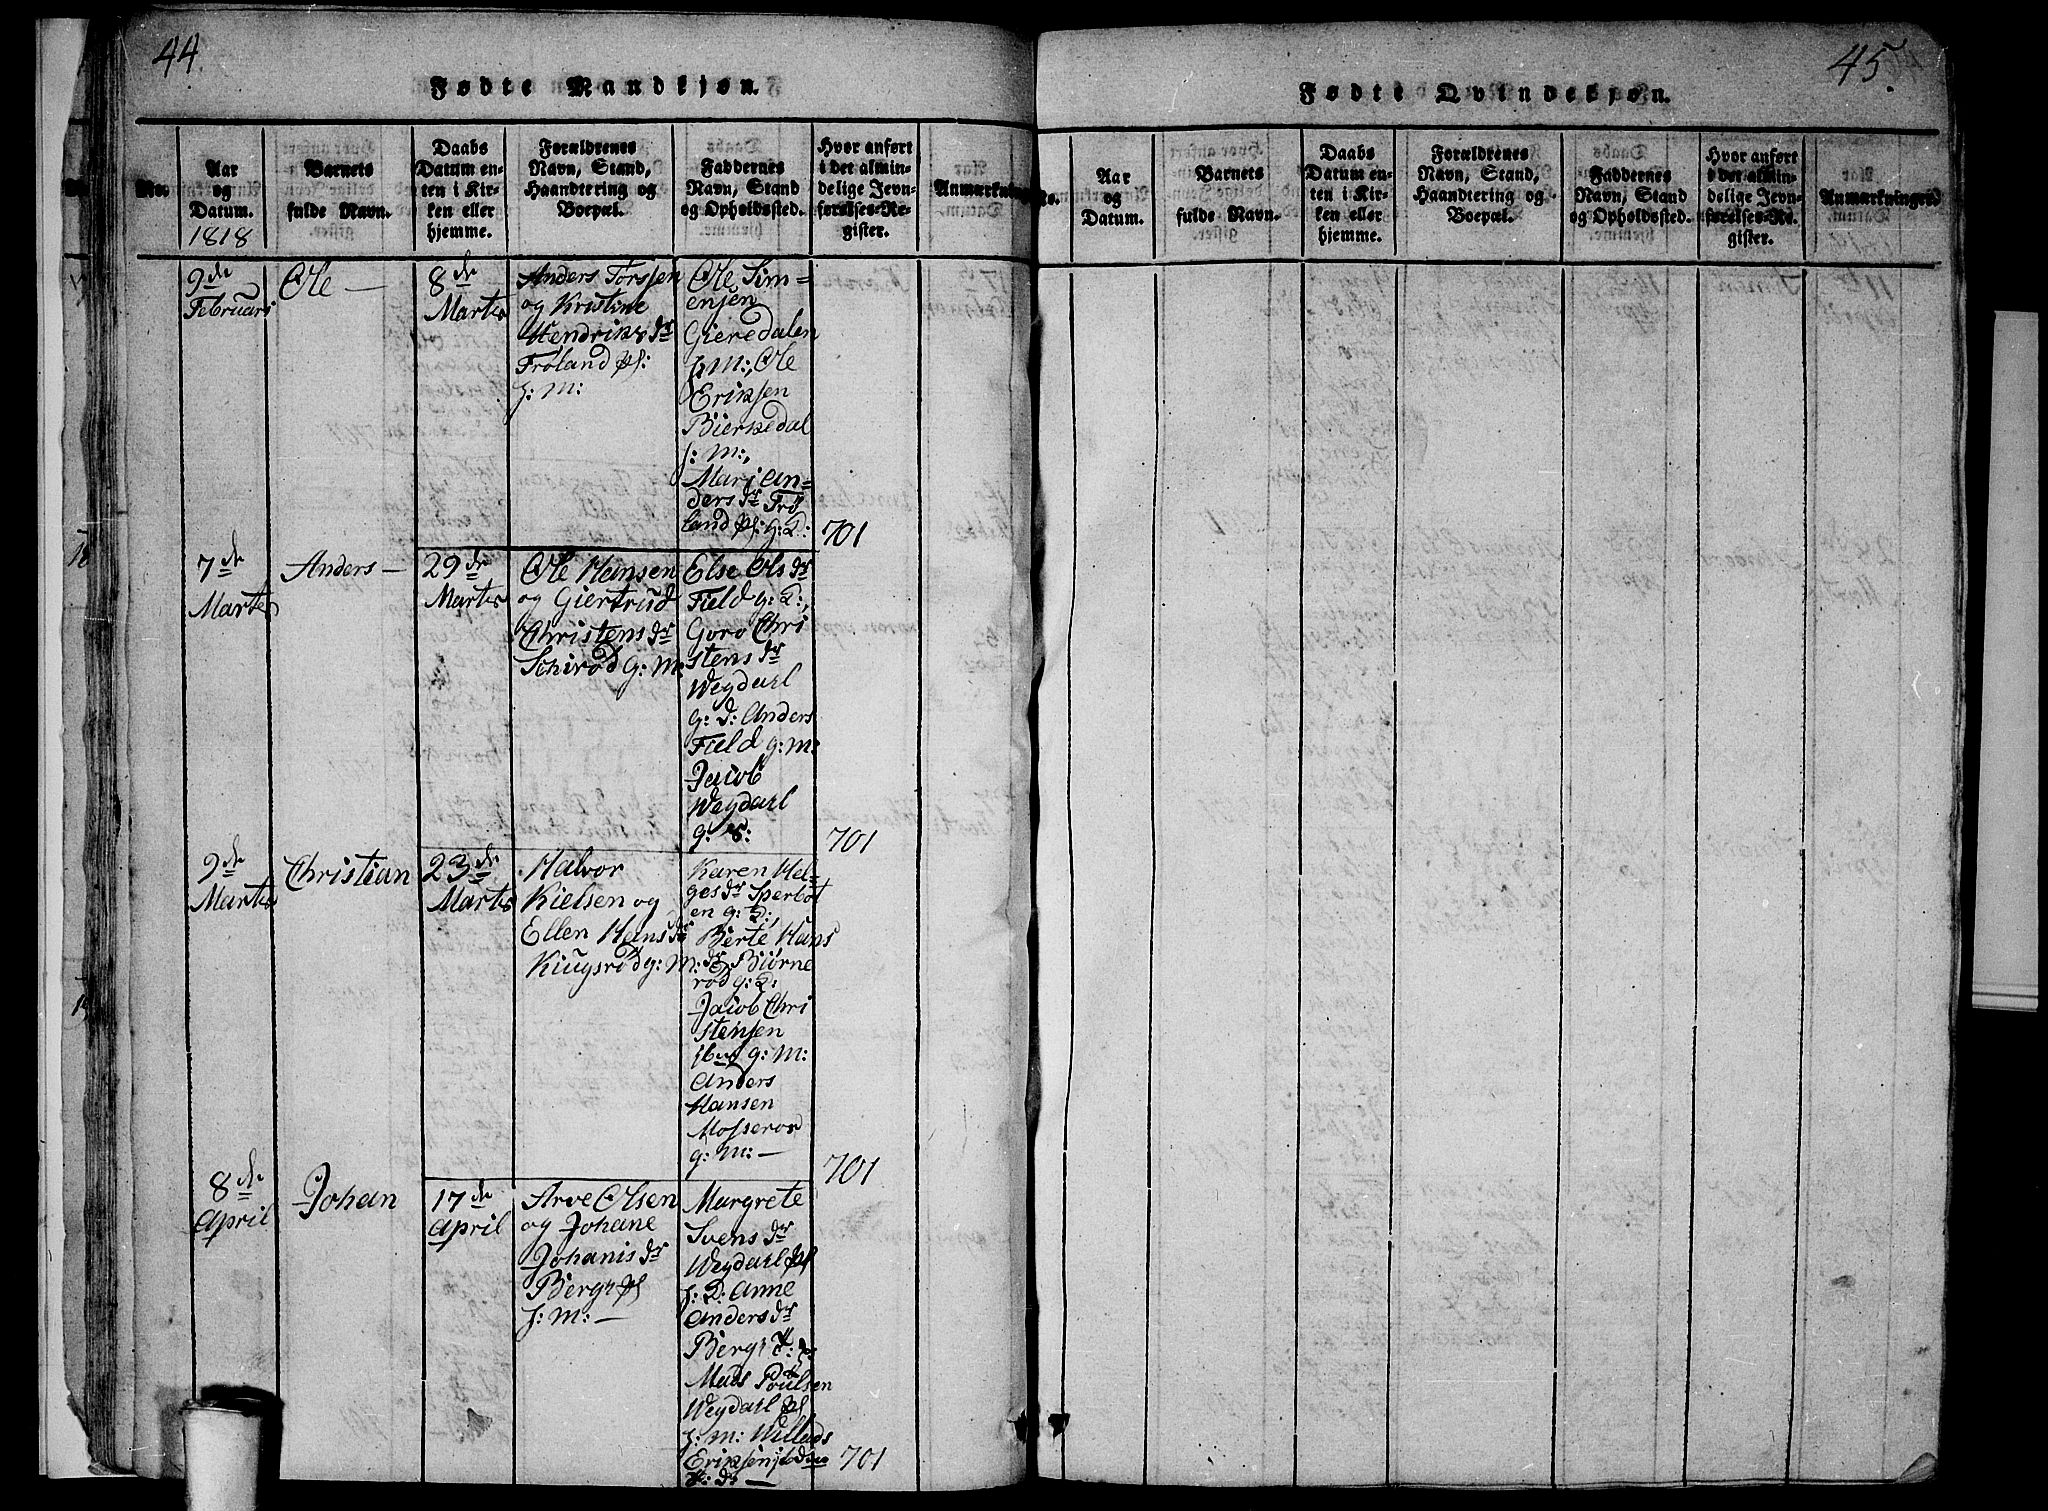 44.
Fødte Mandkjøn.
No.
Aar
og
Datum.
1818
Barnets
fulde Navn.
Daabs
Datum en-
ten i Kir-
ken eller
hjemme.
Forældrenes
Navn, Stand,
Haandtering og
Boepæl.
Faddernes
Navn, Stand
og Opholdssted.
Hvor anført
i det almin-
delige Jevn-
førelses-Re-
gister.
Anmærkning
9de
Februari
Ole —
8de
Martis
Anders Torssen
og Kristine
Hendriks dr
Frøland pl:
f: M:
Ole Sim=
ensen
Gieredalen
f: M:, Ole
Eriksen
Bierkedal
f: M:,
Mari An=
ders dr Frø
land pl: g: D:
701
7de
Martis
Anders —
29de
Martis
Ole Hansen
og Giertrud
Christens dr
Schirød g: M:
Else Ols dr
Field g: D:,
Goro Chri
stens dr
Wegdarl
g: d: Anders
Field g: M:
Jacob
Wegdarl
g: S:
701
9de
Martis
Christian
23de
Martis
Halvor
Kielsen og
Ellen Hans dr
Kiugsrød g: M:
Karen Hel=
ges dr Sperbot
en g: D:,
Berte Hans
dr Biørne
rød g: D:
Jacob Chri
stensen
g: M:
Anders
Hansen
Mosserød
g: M: —
701
8de
April
Johan
17de
April
Arve Olsen
og Johane
Johanis dr
Berge pl
f: M: —
Margrete
Svens dr
Wegdarl pl
f: D: Anne
Anders dr
Berge
Mads Poulsen
Wegdarl pl
f: M: Willads
Eriksen
701
45.
Fødte Qvindekjøn.
No.
Aar
og
Datum.
Barnets
fulde Navn.
Daabs
Datum en-
ten i Kir-
ken eller
hjemme.
Forældrenes
Navn, Stand,
Haandtering og
Boepæl.
Faddernes
Navn, Stand
og Opholdssted.
Hvor anført
i det almin-
delige Jevn-
førelses-Re-
gister.
Anmærkninger.